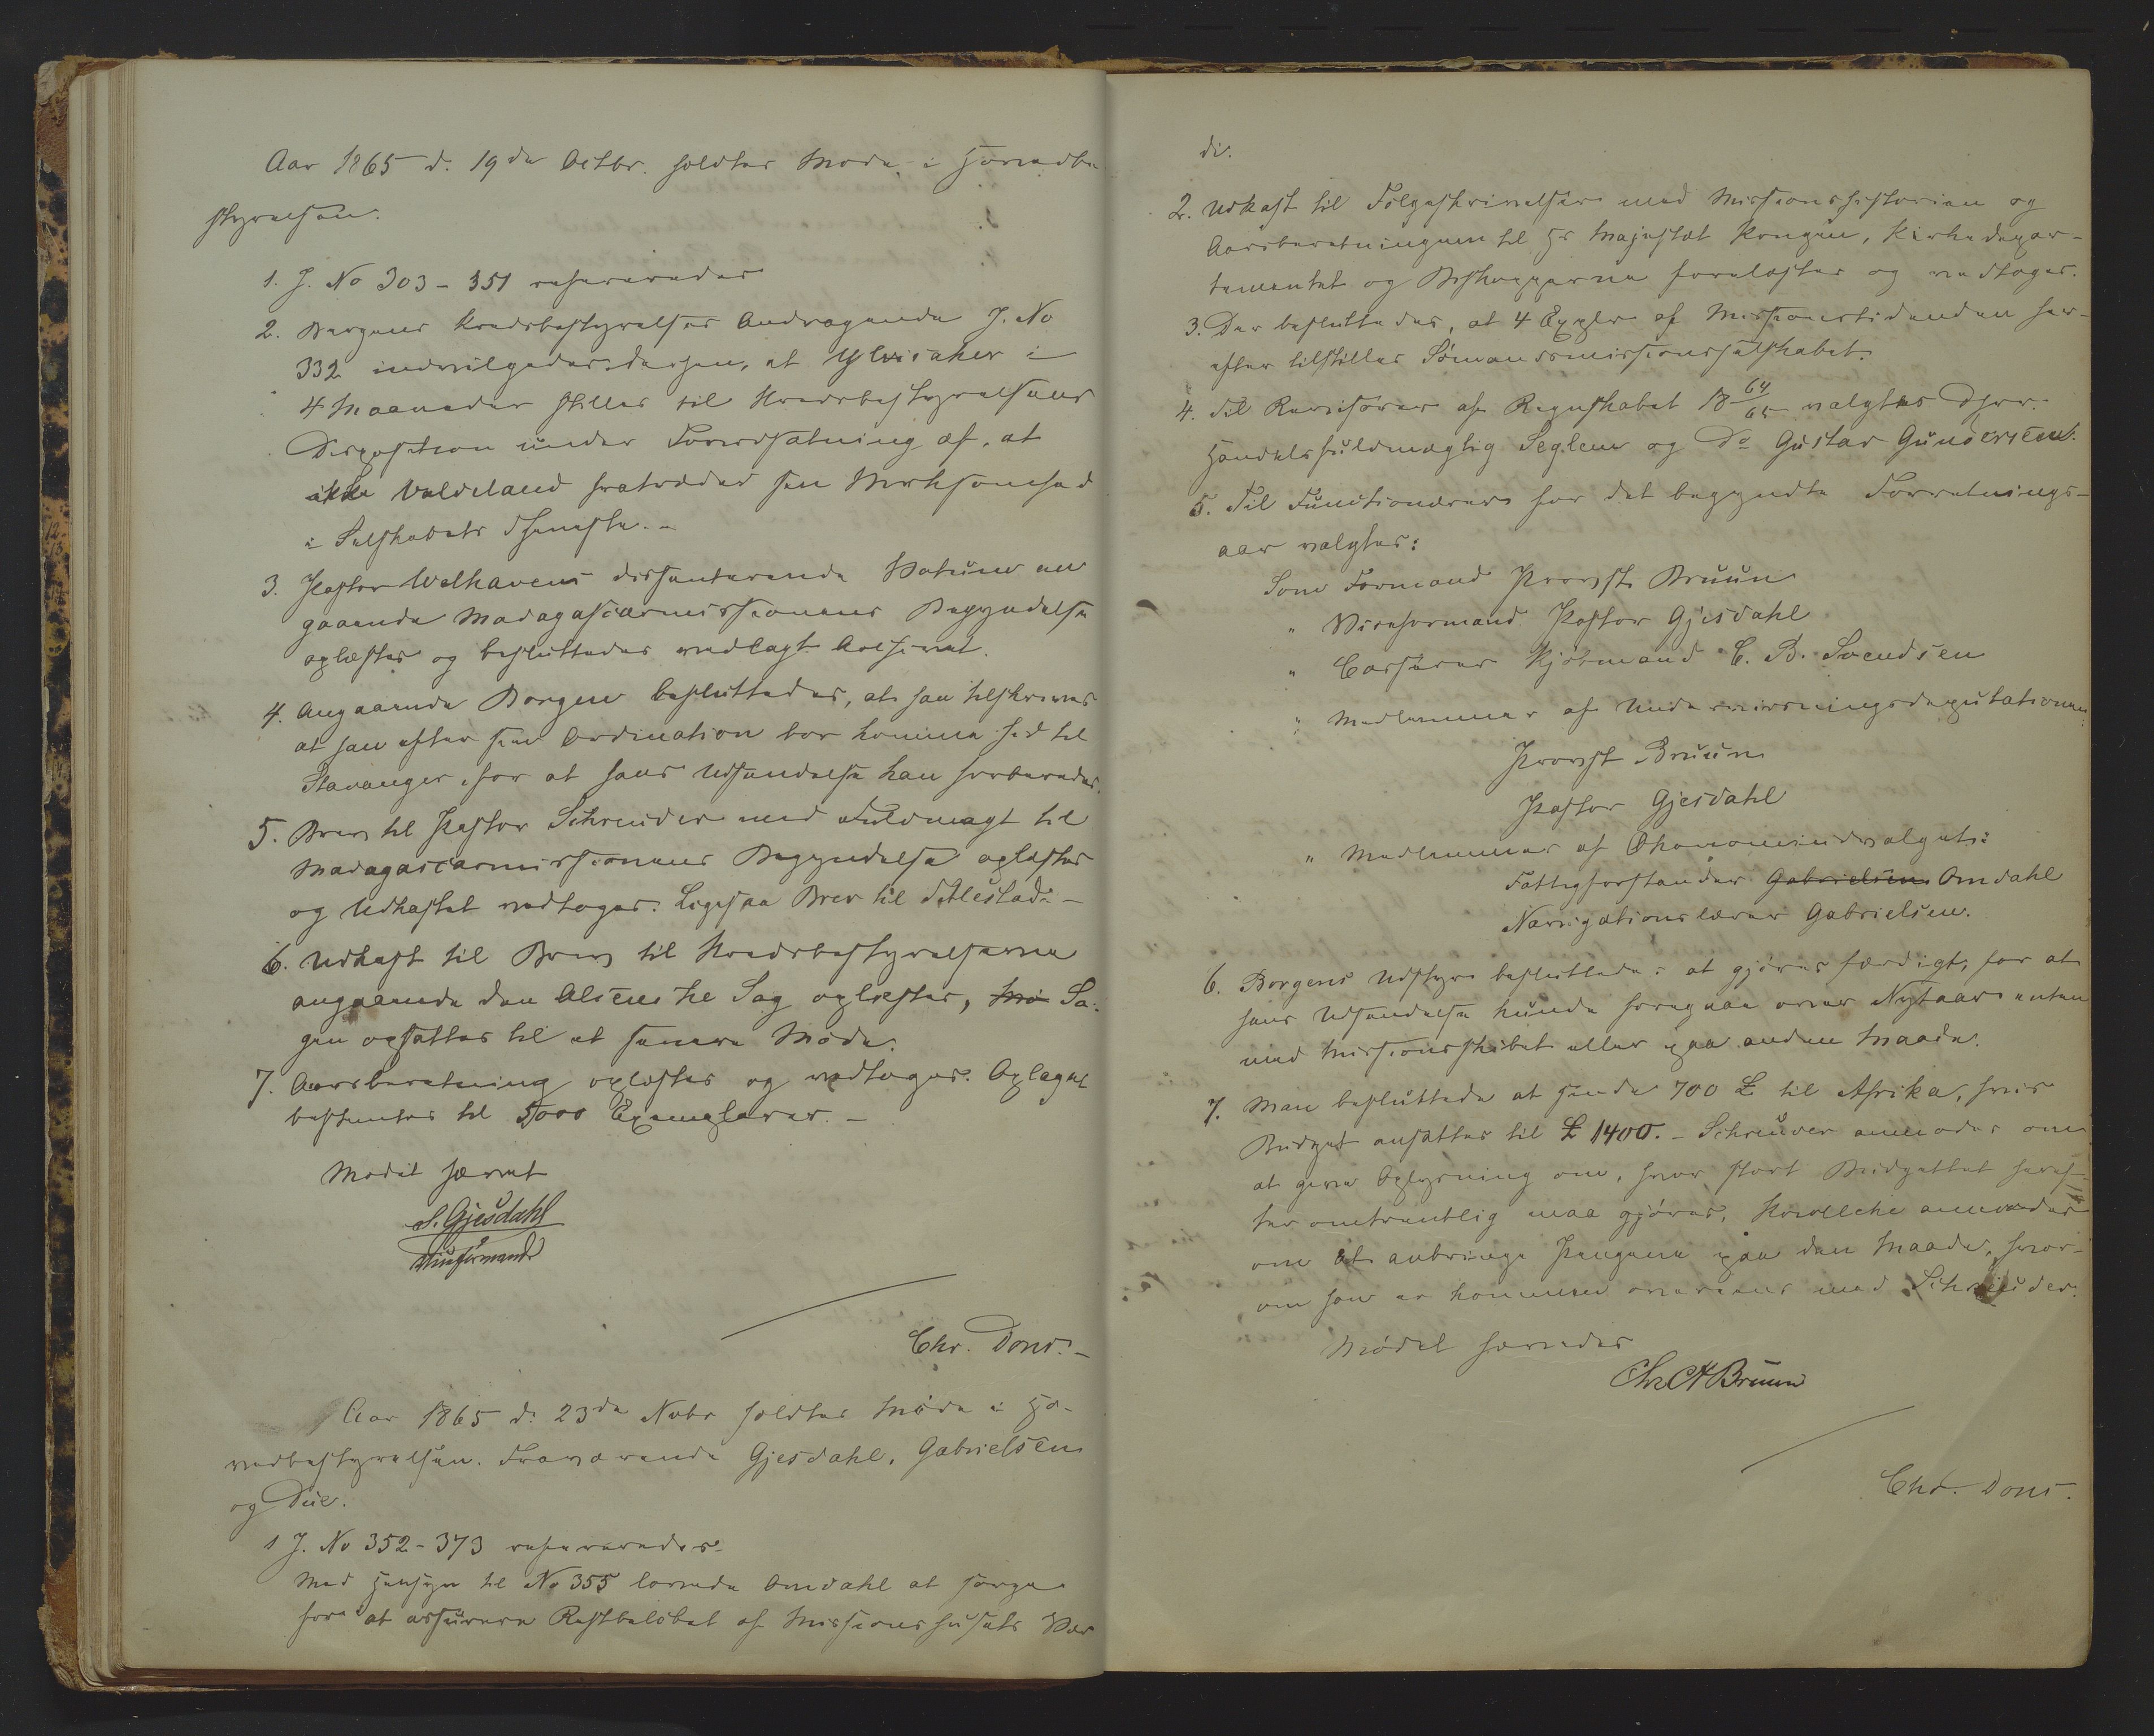 Aar 1865 d. 19de Octbr. holdtes Møde i Hovedbe
styrelsen.
1. J. No 303 - 351 refereredes
2. Bergens Kredsbestyrelses Andragende J. No
332 indvilgedes derhen, at Ylvisaker i
4 Maaneder stilles til Kredsbestyrelsens
Disposition under Forudsætning af, at
ikke Valdeland fratræder sin Virksomhed
i Selskabets Tjeneste. -
3. Pastor Welhavens dissenterende Votum an
gaaende Madagascarmissionens Begyndelse
oplæstes og besluttedes vedlagt Archivet.
4. Angaaende Borgen besluttedes, at han tilskrives
at han efter sin Ordination bør komme hid til
Stavanger, for at hans Udsendelse kan forberedes.
5. Brev til Pastor Schreuder med Fuldmagt til
Madagascarmissionens Begyndelse oplæstes
og Udkastet vedtoges. Ligesaa Brev til Udlestad. -
6. Udkast til Brev til Kredsbestyrelserne
angaaende den Alstenske Sag oplæstes, Mø Sa-
gen opsattes til et senere Møde.
7. Aarsberetning oplæstes og vedtoges. Oplaget
bestemtes til 5,000 Exemplarer. -
Mødet hævet
S. Gjesdahl
Viceformand
Chr. Dons. -
Aar 1865 d. 23de Novbr holdtes Møde i Ho-
vedbestyrelsen. Fraværende Gjesdahl, Gabrielsen
og Due.
1 J. No 352 - 373 refereredes.
Med Hensyn til No 355 lovede Omdahl at sørge
for at assurere Restbeløbet af Missionshusets Vær
di.
2. Udkast til Følgeskrivelser med Missionshistorien og
Aarsberetningen til Hs Majestæt Kongen, Kirkedepar-
tementet og Biskopperne forelæstes og vedtoges.
3. Der besluttedes, at 4 Expler af Missionstidenden her-
efter tilstilles Sømandsmissionsselskabet.
4. Til Revisorer af Regnskabet 18 64/65 valgtes Dhrr.
Handelsfuldmægtig Seglem og Do Gustav Gundersen.
5. Til Functionærer for det begyndte Forretnings-
aar valgtes:
Som Formand Provst Bruun
" Viceformand Pastor Gjesdahl
" Casserer Kjøbmand C. B. Svendsen
" Medlemmer af Undervisningsdeputationen:
Provst Bruun
Pastor Gjesdahl
" Medlemmer af Økonomiudvalget:
Fattigforstander Gabrielsen Omdahl
Navigationslærer Gabrielsen.
6. Borgens Udstyr besluttedes at gjøres færdigt, for at
hans Udsendelse kunde foregaa over Nytaar enten
med Missionsskibet eller paa anden Maade.
7. Man besluttede at sende 700 £ til Afrika, hvis
Budget ansattes til £ 1400. - Schreuder anmodes om
at give Oplysning om, hvor stort Budgettet heref-
ter omtrentlig maa gjøres. Kovelske anmodes
om at anbringe Pengene paa den Maade, hvor-
om han er kommen overeens med Schreuder.
Mødet hævedes
Chr A Bruun
Chr. Dons.